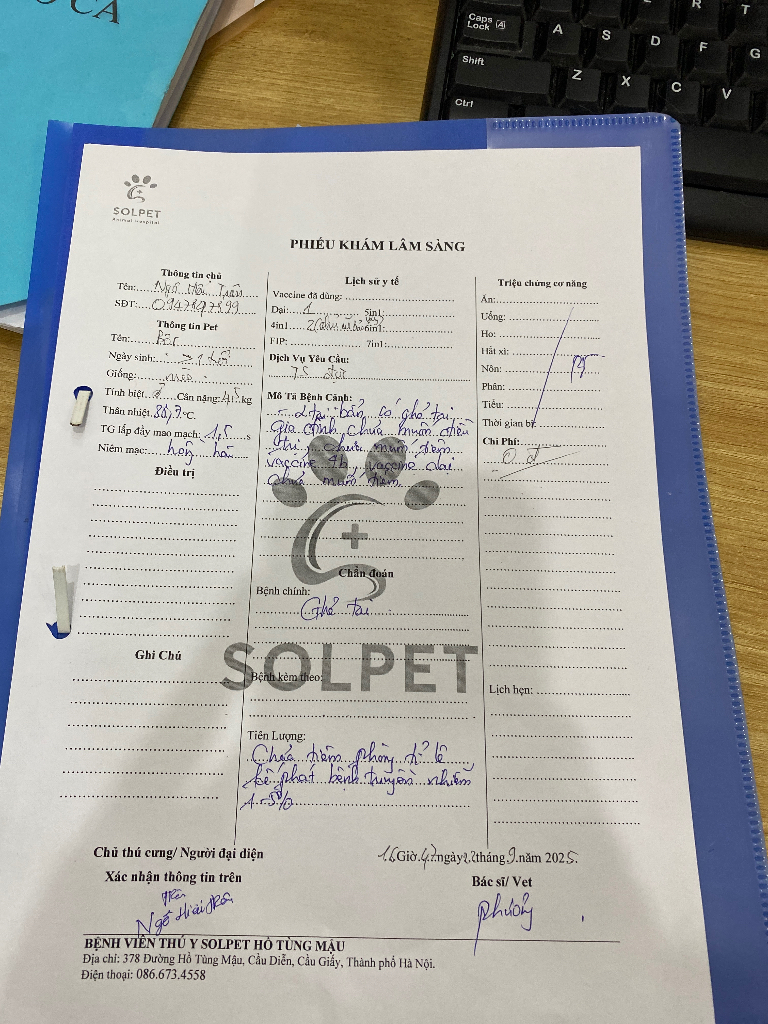 OCA
Caps Lock A
A S D F G
R T
Shift
Z X C V
Ctrl
SOLPET
Animal Hospital
PHIẾU KHÁM LÂM SÀNG
Thông tin chủ
Tên: Ngô
SĐT:
Thông tin Pet
Tên:
Ngày sinh:
Giống: mèo
Tính biệt Cân nặng: kg
Thân nhiệt °C
TG lấp đầy mao mạch: 1,5 s
Niêm mạc: hồng hào
Điều trị
Ghi Chú
Lịch sử y tế
Vaccine đã dùng:
Dại: 1 5in1:
4in1 2 6in1:
FIP: 7in1:
Dịch Vụ Yêu Cầu:
TS dại
Mô Tả Bệnh Cảnh:
- 2 tai bẩn, có ghẻ tai
gia đình chưa muốn điều
trị, chưa muốn tiêm
vaccine 4b, vaccine dại
chưa muốn tiêm
Chẩn đoán
Bệnh chính:
Ghẻ tai
SOLPET
Bệnh kèm theo:
Tiên Lượng:
Chưa tiêm phòng tỉ lệ
kế phát bệnh truyền nhiễm
1-5%
Triệu chứng cơ năng
Ăn:
Uống:
Ho:
Hắt xì:
Nôn:
Phân:
Tiểu:
Thời gian bị:
BT
Chi Phí:
0 đ
Lịch hẹn:
Chủ thú cưng/ Người đại diện
Xác nhận thông tin trên
16 Giờ 47 ngày 22 tháng 9 năm 2025.
Bác sĩ/ Vet
Phương
BỆNH VIỆN THÚ Y SOLPET HỒ TÙNG MẬU
Địa chỉ: 378 Đường Hồ Tùng Mậu, Cầu Diễn, Cầu Giấy, Thành phố Hà Nội.
Điện thoại: 086.673.4558